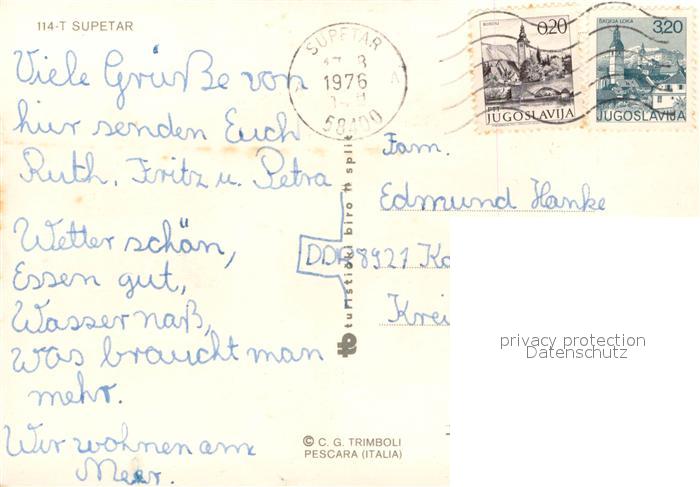 114-T SUPETAR
Viele Grüße von
hier senden Euch
Ruth, Fritz u. Petra
Wetter schön,
Essen gut,
Wasser naß,
Was braucht man
mehr.
Wir wohnen am
Meer.
© C. G. TRIMBOLI
PESCARA (ITALIA)
turistički biro
tb
SUPETAR
1976
58400
0,20
JUGOSLAVIJA
ŠKOFJA LOKA
3,20
JUGOSLAVIJA
Fam.
Edmund Hanke
DDR 8921
privacy protection
Datenschutz